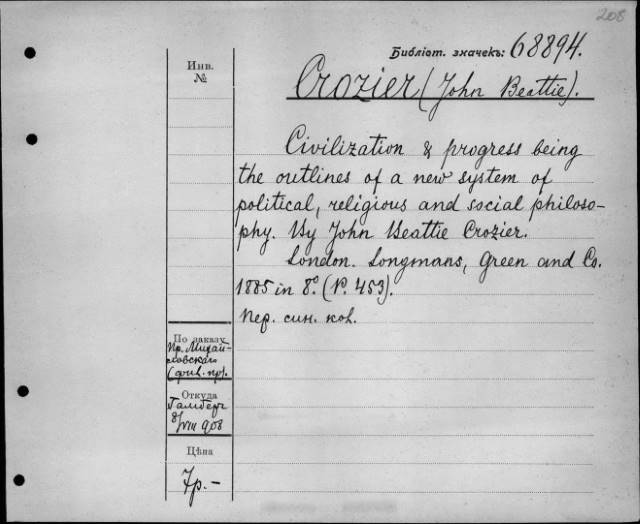 208
Библіот. значекъ: 68894.
Инв.
№
Crozier (John Beattie).
Civilization & progress being
the outlines of a new system of
political, religious and social philoso-
phy. By John Beattie Crozier.
London. Longmans, Green and Co.
1885 in 8°. (P. 453).
Пер. син. кол.
По заказу
Пр. Михай-
ловскаго
(фил. пр).
Откуда
8/VIII 908
Цѣна
7р. –